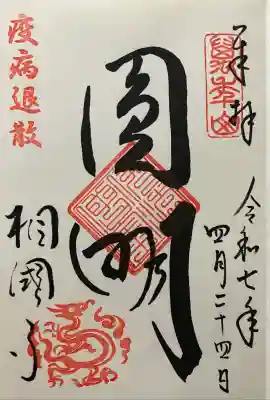 奉拝
萬年山
令和七年
四月二十四日
圓明
疫病退散
相國寺